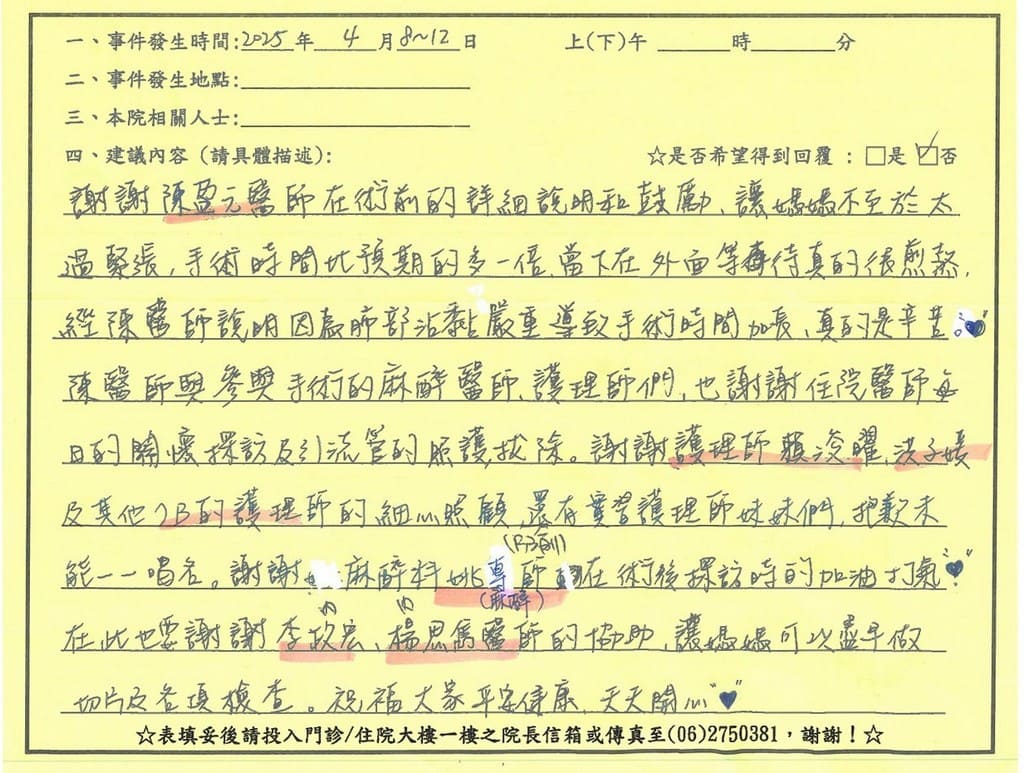 一、事件發生時間:2025年 4 月8~12日 上(下)午 時 分
二、事件發生地點:
三、本院相關人士:
四、建議內容(請具體描述): ☆是否希望得到回覆:□是 ☑否
謝謝陳盈元醫師在術前的詳細說明和鼓勵、讓媽媽不至於太
過緊張,手術時間比預期的多一倍,當下在外面等待真的很煎熬,
經陳醫師說明因為肺部沾黏嚴重導致手術時間加長、真的是辛苦
陳醫師與參與手術的麻醉醫師、護理師們,也謝謝住院醫師每
日的關懷探訪及引流管的照護,拔除。謝謝護理師賴 曜、洪子
及其他7B的護理師的細心照顧,還有實習護理師妹妹們,抱歉未
能一一唱名。謝謝麻醉科姚專師(麻醉)在術後探訪時的加油打氣
在此也要謝謝李 宏、楊思雋醫師的協助,讓媽媽可以盡早做
切片及各項檢查。祝福大家平安健康、天天開心
☆表填妥後請投入門診/住院大樓一樓之院長信箱或傳真至(06)2750381,謝謝!☆